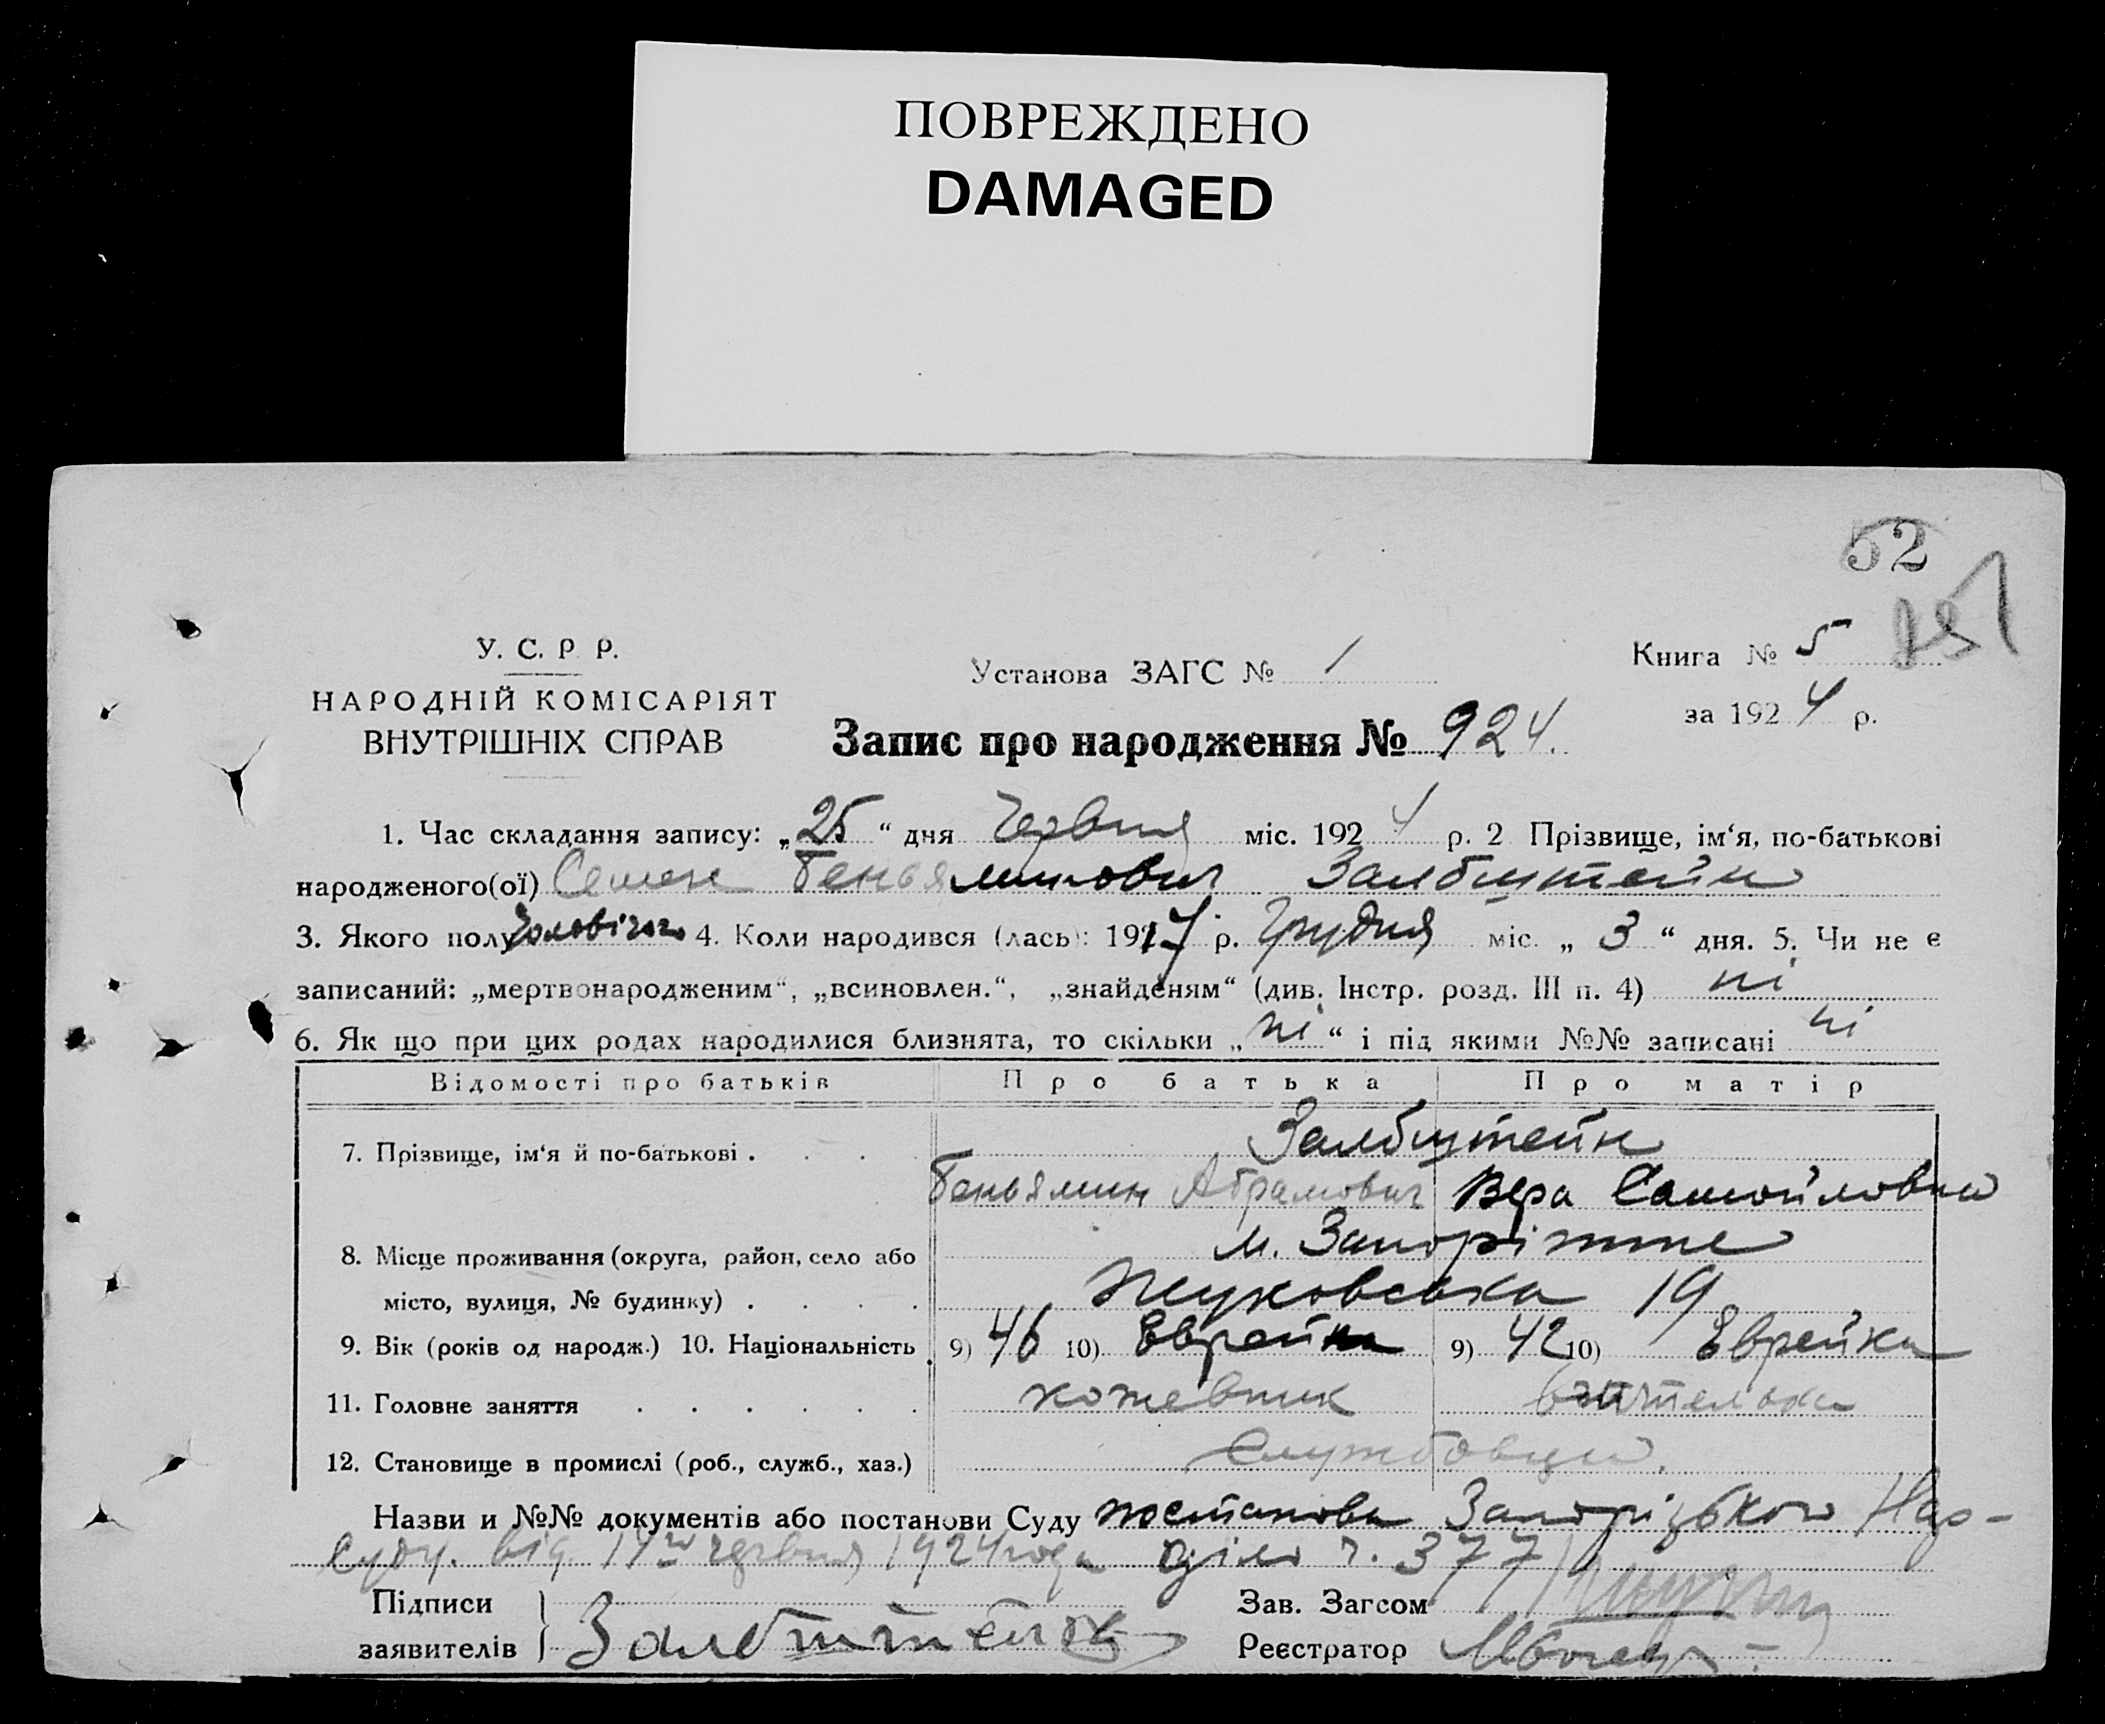 ПОВРЕЖДЕНО
DAMAGED
52
У. С. Р Р.
НАРОДНІЙ КОМІСАРІЯТ
ВНУТРІШНІХ СПРАВ
Установа ЗАГС № 1
Книга № 5
за 1924 р.
Запис про народження № 924.
1. Час складання запису: „25“ дня Червня міс. 1924 р. 2 Прізвище, ім‘я, по-батькові
народженого(ої) Семен Беньяминович Залбштейн
3. Якого полу чоловічого 4. Коли народився (лась): 1917 р. Грудня міс. „3“ дня. 5. Чи не є
записаний: „мертвонародженим“, „всиновлен.“, „знайденям“ (див. Інстр. розд. III п. 4) ні
6. Як що при цих родах народилися близнята, то скільки „ні“ і під якими №№ записані ні
Відомості про батьків Про батька Про матір
7. Прізвище, ім‘я й по-батькові . . . . Залбштейн
Беньямин Абрамович Вера Самойловна
8. Місце проживання (округа, район, село або м. Запоріжже
місто, вулиця, № будинку) . . . . Жуковська 19
9. Вік (років од народж.) 10. Національність 9) 46 10) Еврейка 9) 42 10) Еврейка
11. Головне заняття . . . . . . кожевник
12. Становище в промислі (роб., служб., хаз.) службовци.
Назви и №№ документів або постанови Суду постанова Запорізького Нар-
суду. від 14го червня 1924 года діло ч. 377
Підписи
заявителів Залбштейн
Зав. Загсом
Реєстратор